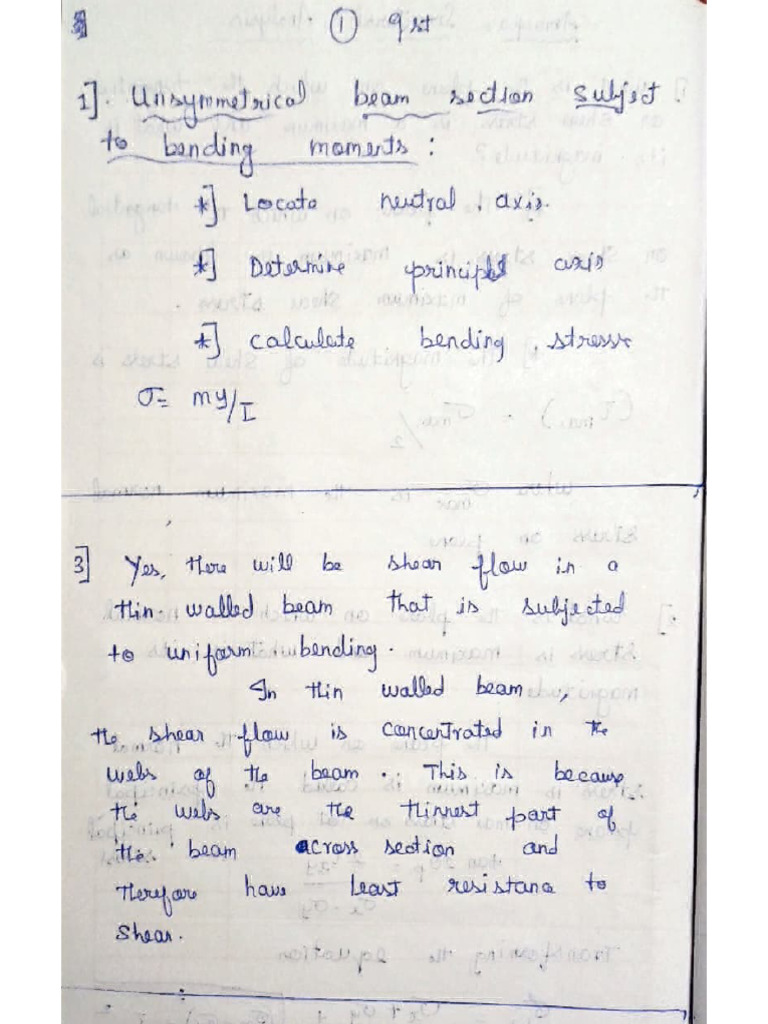 ① 9st
1]. Unsymmetrical beam section subject
to bending moments :
*] Locate neutral axis.
*] Determine principle axis
*] calculate bending stress
σ = my/I
3] Yes, there will be shear flow in a
thin walled beam that is subjected
to uniform bending.
In thin walled beam,
the shear flow is concentrated in the
webs of the beam. This is because
the webs are the thinnest part of
the beam across section and
therfore have least resistance to
shear.